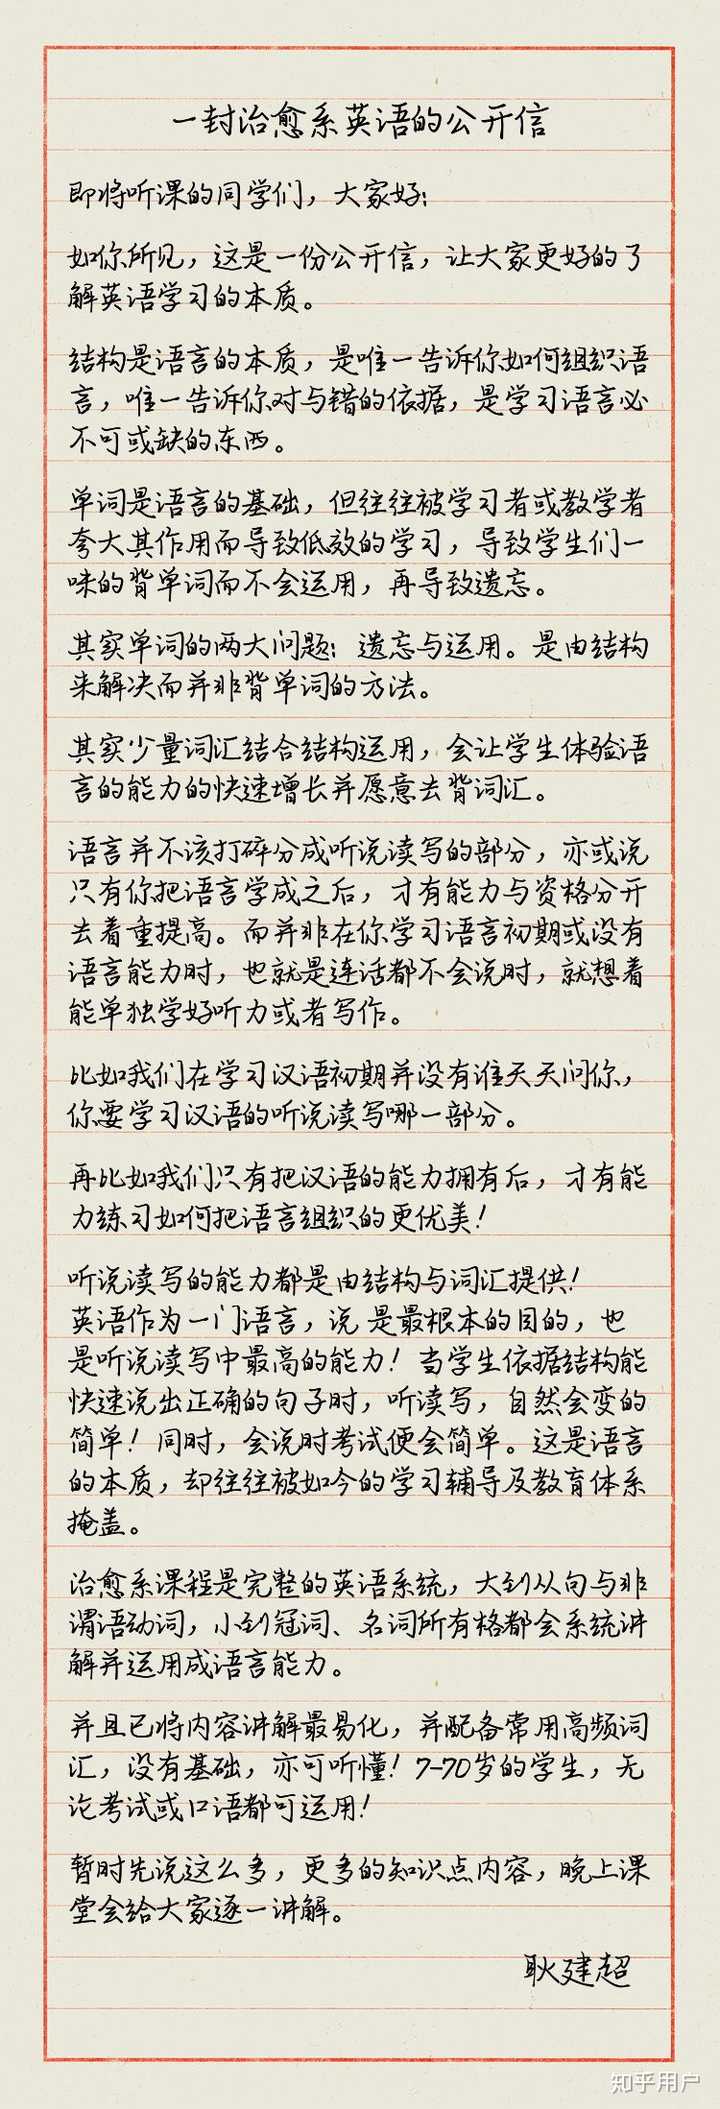 一封治愈系英语的公开信
即将听课的同学们，大家好：
如你所见，这是一份公开信，让大家更好的了
解英语学习的本质。
结构是语言的本质，是唯一告诉你如何组织语
言，唯一告诉你对与错的依据，是学习语言必
不可或缺的东西。
单词是语言的基础，但往往被学习者或教学者
夸大其作用而导致低效的学习，导致学生们一
味的背单词而不会运用，再导致遗忘。
其实单词的两大问题：遗忘与运用。是由结构
来解决而并非背单词的方法。
其实少量词汇结合结构运用，会让学生体验语
言的能力的快速增长并愿意去背词汇。
语言并不该打碎分成听说读写的部分，亦或说
只有你把语言学成之后，才有能力与资格分开
去着重提高。而并非在你学习语言初期或没有
语言能力时，也就是连话都不会说时，就想着
能单独学好听力或者写作。
比如我们在学习汉语初期并没有谁天天问你，
你要学习汉语的听说读写哪一部分。
再比如我们只有把汉语的能力拥有后，才有能
力练习如何把语言组织的更优美！
听说读写的能力都是由结构与词汇提供！
英语作为一门语言，说 是最根本的目的，也
是听说读写中最高的能力！当学生依据结构能
快速说出正确的句子时，听读写，自然会变的
简单！同时，会说时考试便会简单。这是语言
的本质，却往往被如今的学习辅导及教育体系
掩盖。
治愈系课程是完整的英语系统，大到从句与非
谓语动词，小到冠词、名词所有格都会系统讲
解并运用成语言能力。
并且已将内容讲解最易化，并配备常用高频词
汇，没有基础，亦可听懂！7-70岁的学生，无
论考试或口语都可运用！
暂时先说这么多，更多的知识点内容，晚上课
堂会给大家逐一讲解。
耿建超
知乎用户